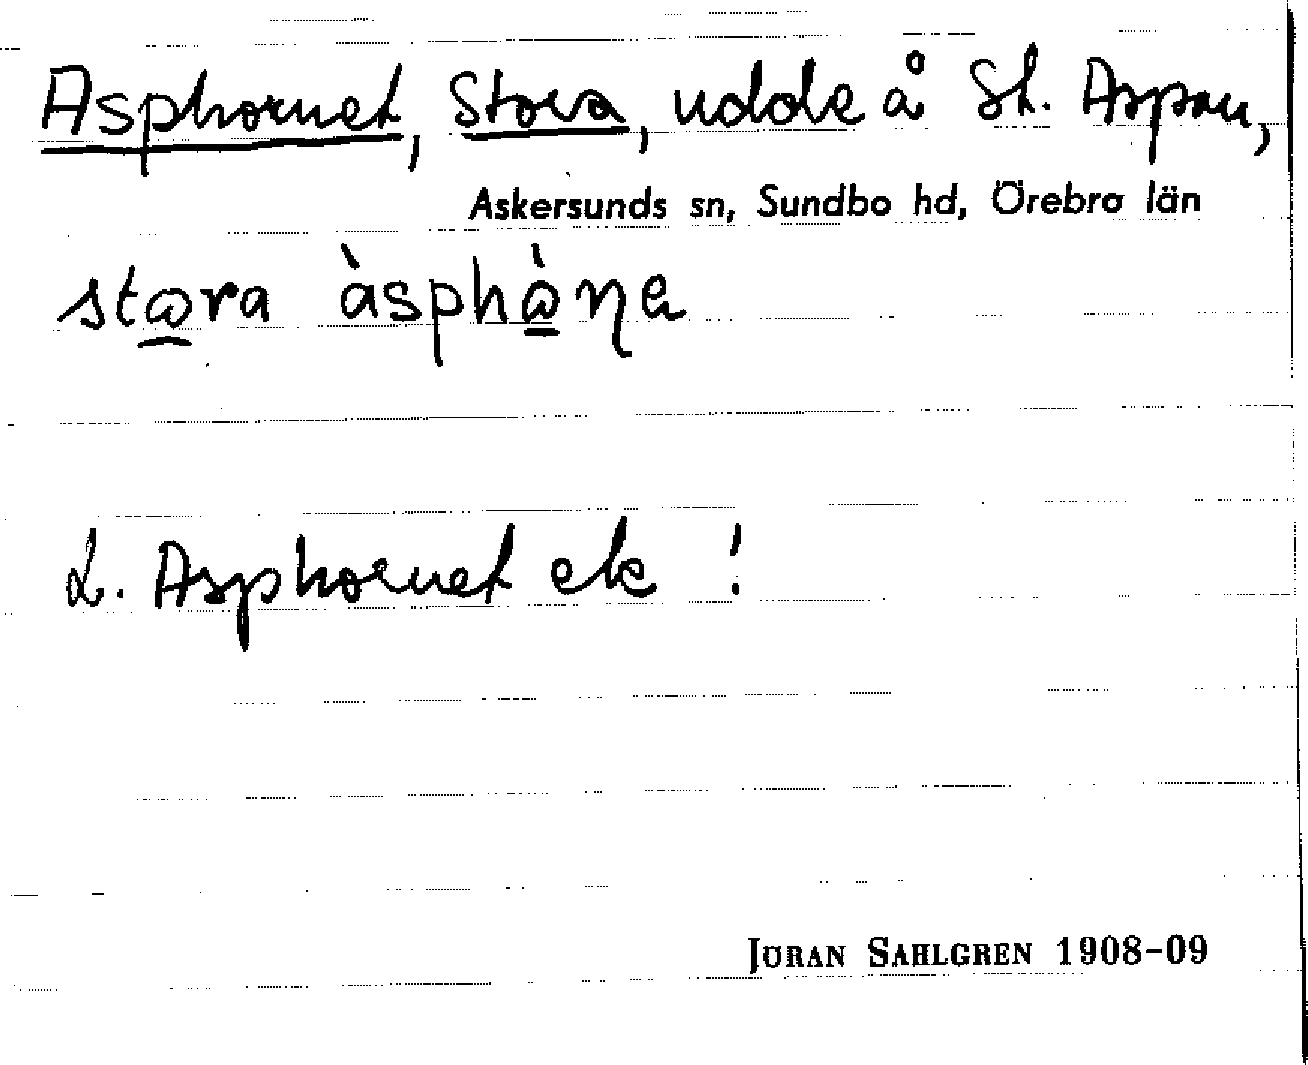 Asphornet, Stora, udde å St. Aspön,
Askersunds sn, Sundbo hd, Örebro län
stora àsphòṇe
L. Asphornet ek !
JÖRAN SAHLGREN 1908-09